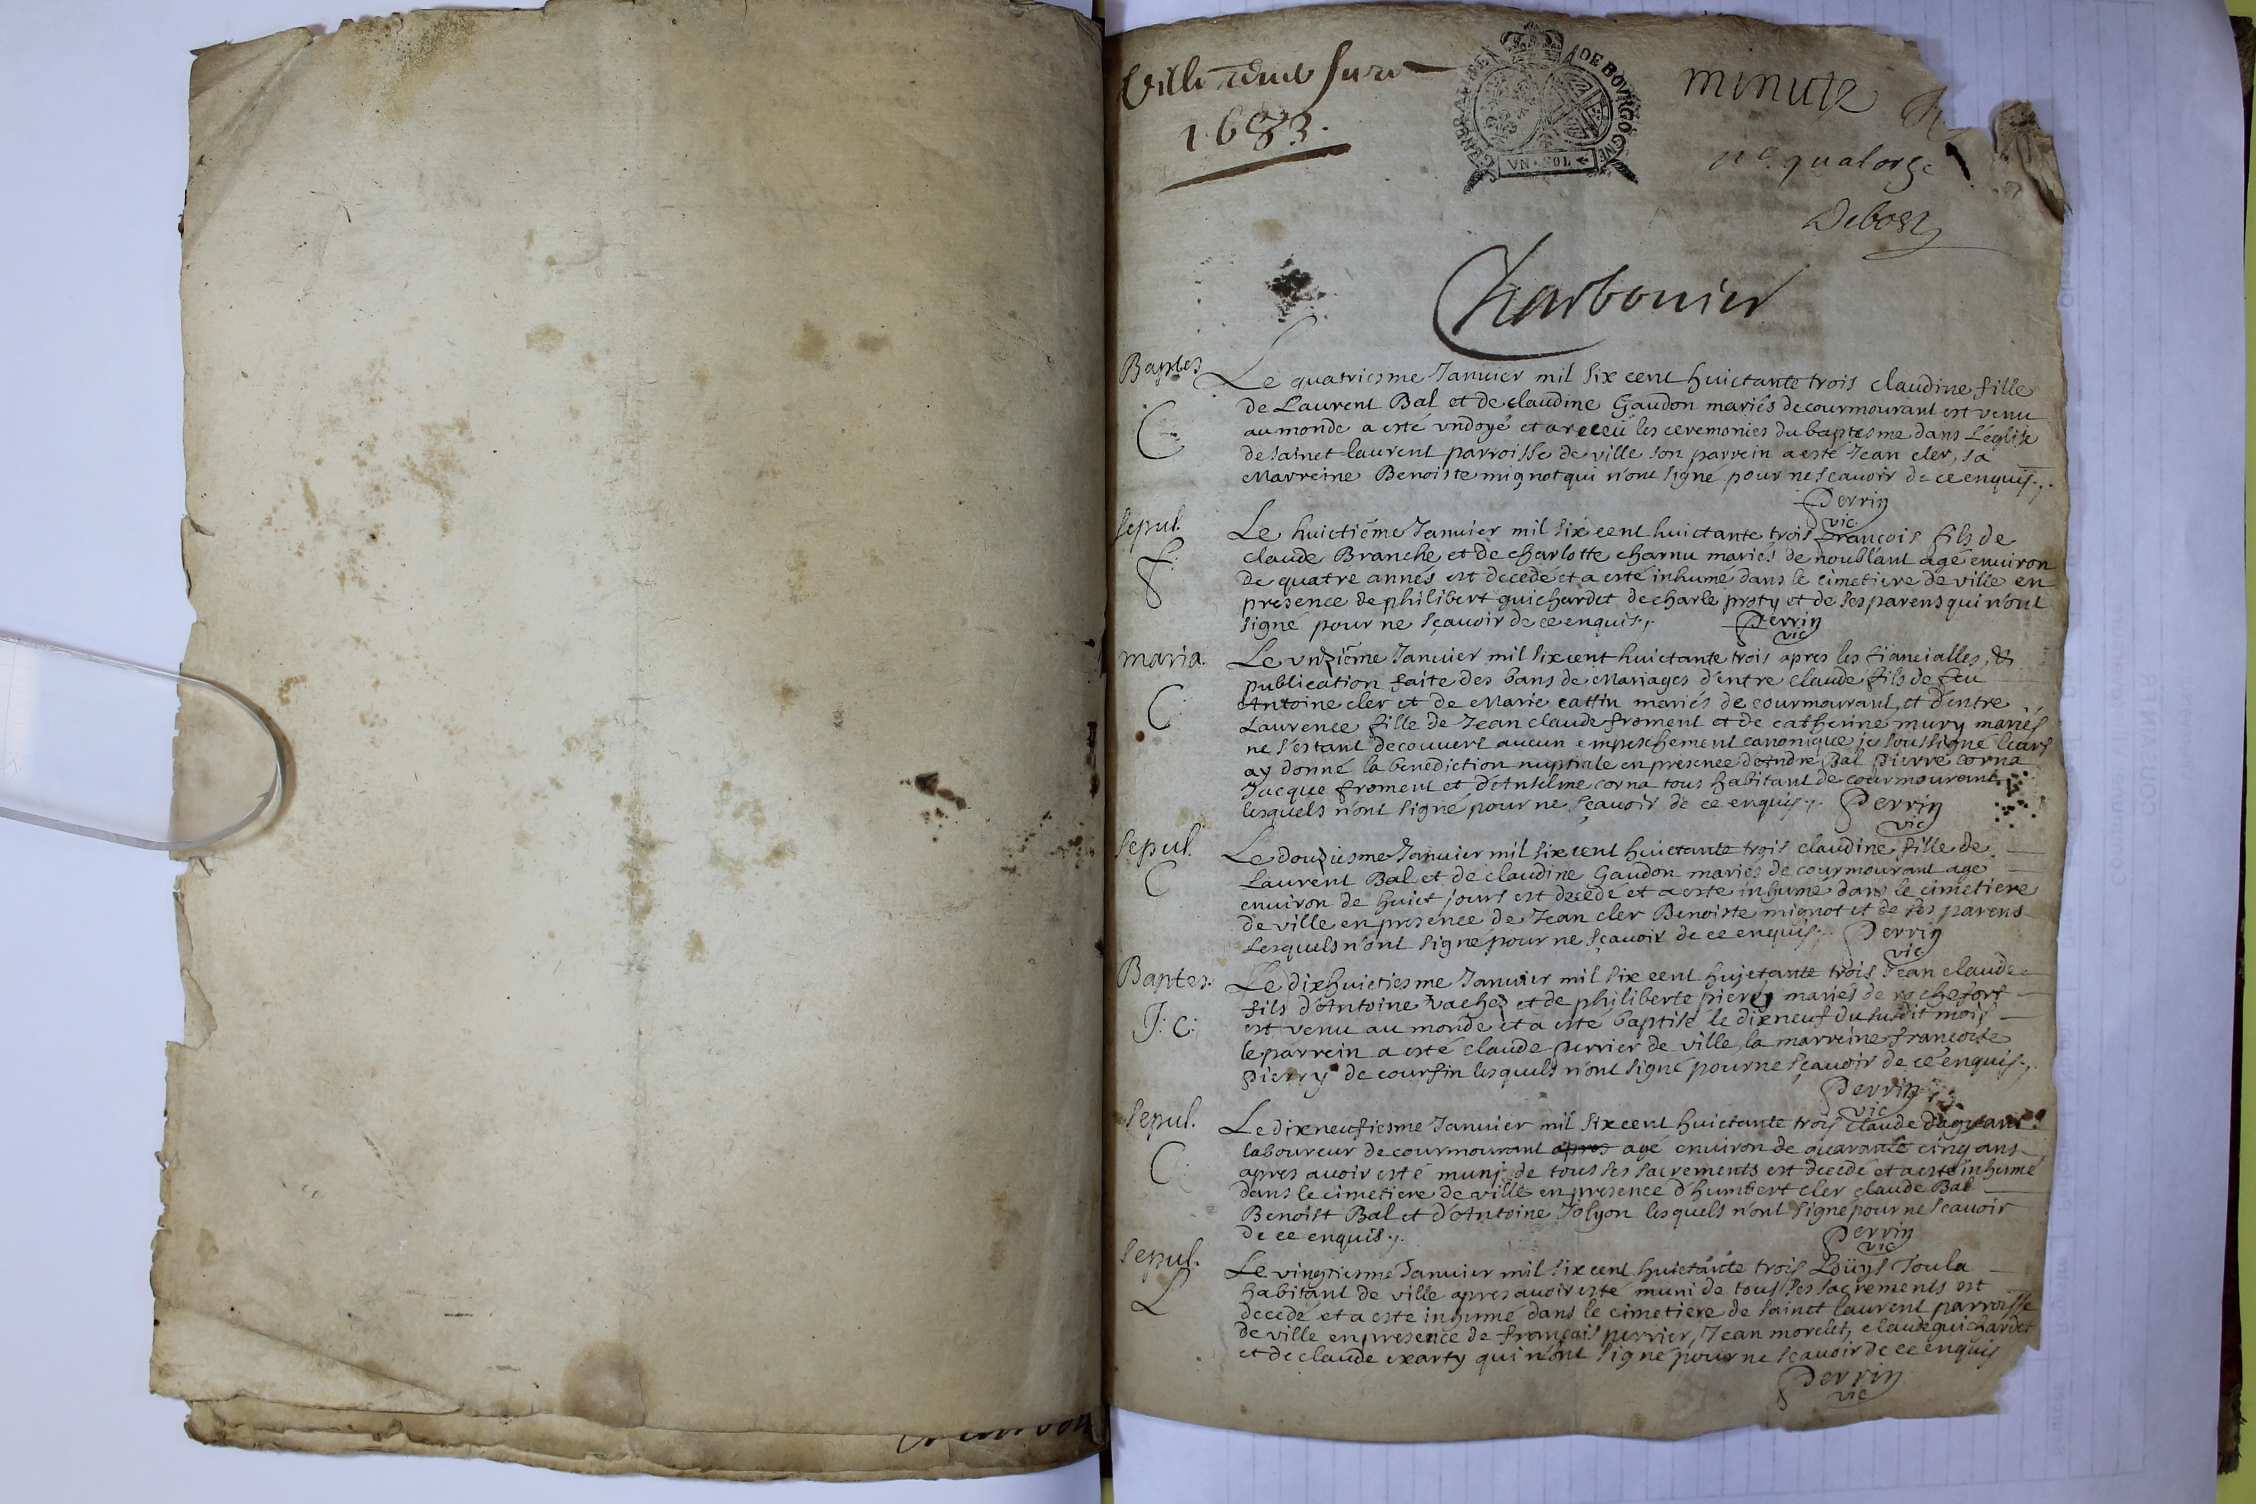 Ville
1683.
DE BOVRGOGNE
VN·SOL
minute
quatorze
Charbonier
Baptes
Le quatriesme Januier mil six cent huictante trois claudine fille
de Laurent Bal et de claudine Gaudon mariés de courmourant est venu
au monde a esté vndoyé et a receü les ceremonies du baptesme dans L'eglise
de sainct laurent parroisse de ville son parrein a esté Jean cler, sa
Marreine Benoiste mignot qui n'ont signé pour ne scauoir de ce enquis.
C
Perrin
vic
sepul.
Le huictiéme Januier mil six cent huictante trois françois fils de
claude Branche et de charlotte charnu mariés de noublant agé enuiron
de quatre annés est decedé et a esté inhumé dans le cimetiere de ville en
presence de philibert guichardet de charle proty et de ses parens qui n'ont
signé pour ne sçauoir de ce enquis.
F
Perrin
vic
maria.
Le vnziéme Januier mil six cent huictante trois apres les fiancialles, &
publication faite des bans de Mariages d'entre claude fils de feu
Antoine cler et de Marie cattin mariés de courmourant, et d'entre
Laurence fille de Jean claude froment et de catherine mury mariés
ne s'estant decouuert aucun empeschement canonique je soussigné leurs
ay donné la benediction nuptiale en presence d'Andre Bal pierre corna
Jacque froment et d'Anselme corna tous habitant de courmourant
lesquels n'ont signé pour ne sçauoir de ce enquis.
C
Perrin
vic
sepul.
Le douziesme Januier mil six cent huictante trois claudine fille de
Laurent Bal et de claudine Gaudon mariés de courmourant age
enuiron de huict jours est decedé et a esté inhumé dans le cimetiere
de ville en presence de Jean cler Benoiste mignot et de ses parens
Lesquels n'ont signé pour ne sçauoir de ce enquis.
C
Perrin
vic
Baptes.
Le dixhuictiesme Januier mil six cent huictante trois Jean claude
fils d'Antoine vachez et de philiberte pierry mariés de rochefort
est venu au monde et a esté baptisé le dixneuf du susdit mois
le parrein a esté claude perrier de ville, la marreine françoise
pierry de courfin lesquels n'ont signé pour ne sçauoir de ce enquis.
J: C:
Perrin
vic
sepul.
Le dixneufiesme Januier mil six cent huictante trois claude
laboureur de courmourant apres agé enuiron de quarante cinq ans
apres auoir esté muni de tous ses sacrements est decedé et a esté inhumé
dans le cimetiere de ville en presence d'humbert cler claude Bal
Benoist Bal et d'Antoine Jolyon lesquels n'ont signé pour ne scauoir
de ce enquis.
C
Perrin
vic
sepul.
Le vingtiesme Januier mil six cent huictante trois Loüys Joula
habitant de ville apres auoir esté muni de tous ses sacrements est
decedé et a esté inhumé dans le cimetiere de sainct laurent parroisse
de ville en presence de françois perrier, Jean morelet, claude guichardet
et de claude exarty qui n'ont signé pour ne scauoir de ce enquis
L
Perrin
vic